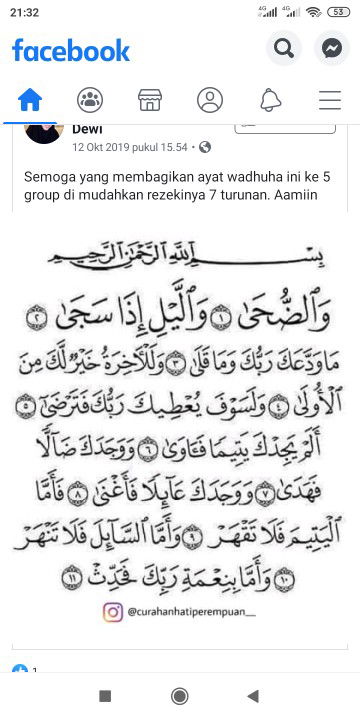 21:32
4G 4G 53
facebook
Dewi
12 Okt 2019 pukul 15.54 •
Semoga yang membagikan ayat wadhuha ini ke 5
group di mudahkan rezekinya 7 turunan. Aamiin
بِسْمِ اللَّهِ الرَّحْمَٰنِ الرَّحِيمِ
وَٱلضُّحَىٰ ١ وَٱلَّيْلِ إِذَا سَجَىٰ ٢
مَا وَدَّعَكَ رَبُّكَ وَمَا قَلَىٰ ٣ وَلَلْآخِرَةُ خَيْرٌ لَّكَ مِنَ
ٱلْأُولَىٰ ٤ وَلَسَوْفَ يُعْطِيكَ رَبُّكَ فَتَرْضَىٰ ٥
أَلَمْ يَجِدْكَ يَتِيمًا فَـَٔاوَىٰ ٦ وَوَجَدَكَ ضَآلًّا
فَهَدَىٰ ٧ وَوَجَدَكَ عَآئِلًا فَأَغْنَىٰ ٨ فَأَمَّا
ٱلْيَتِيمَ فَلَا تَقْهَرْ ٩ وَأَمَّا ٱلسَّآئِلَ فَلَا تَنْهَرْ
١٠ وَأَمَّا بِنِعْمَةِ رَبِّكَ فَحَدِّثْ ١١
@curahanhatiperempuan__
1